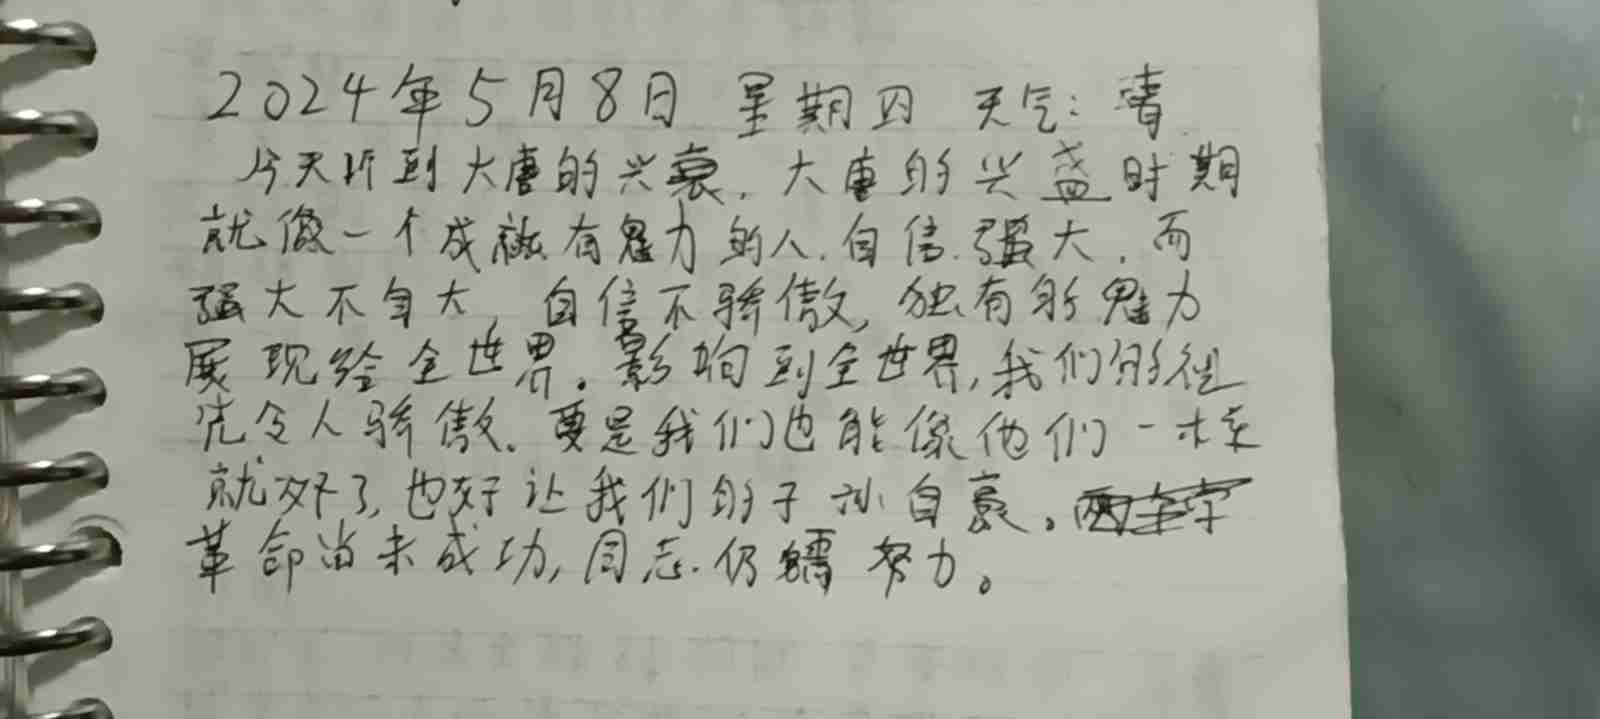 2024年5月8日 星期四 天气：晴
今天听到大唐的兴衰，大唐的兴盛时期
就像一个成熟有魅力的人，自信，强大，而
强大不自大，自信不骄傲，独有的魅力
展现给全世界。影响到全世界，我们的祖
先令人骄傲，要是我们也能像他们一样
就好了，也好让我们的子孙自豪。
革命尚未成功，同志仍需努力。